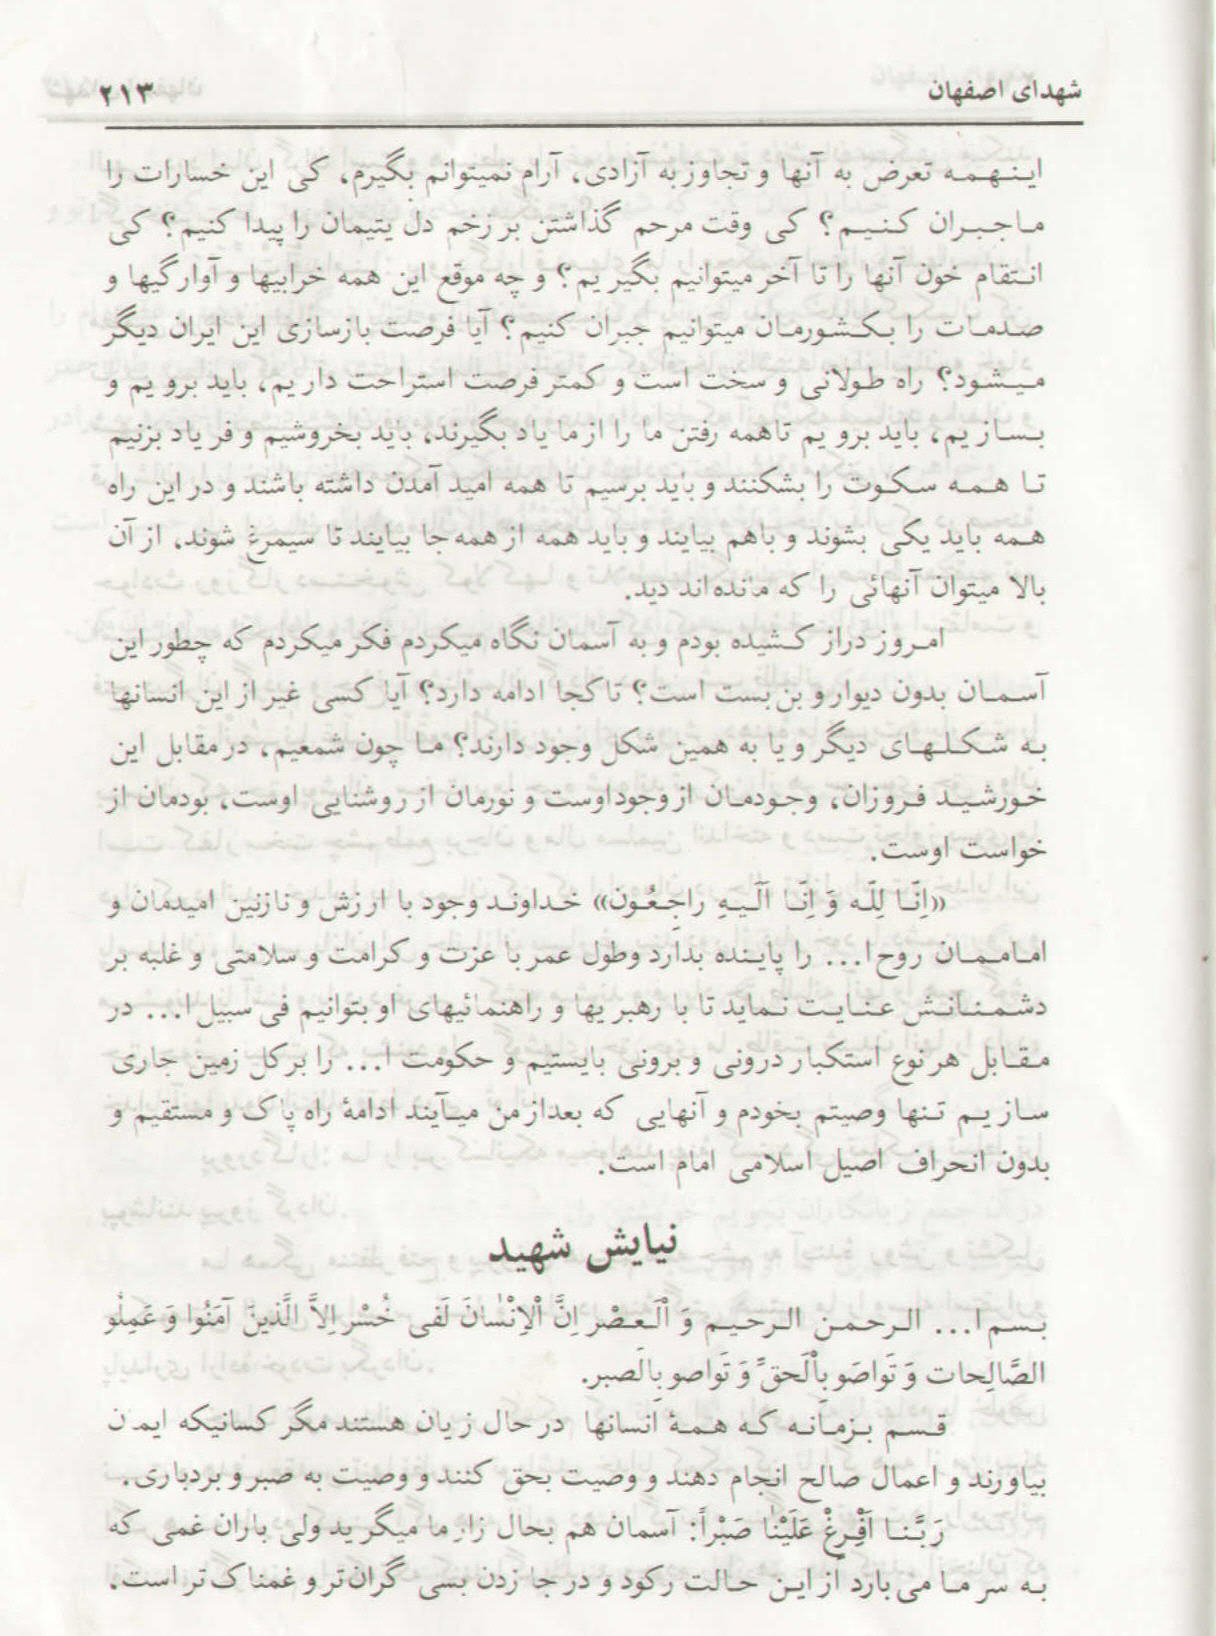 شهدای اصفهان ۲۱۳
اینهمه تعرض به آنها و تجاوز به آزادی، آرام نمیتوانم بگیرم، کی این خسارات را
ما جبران کنیم؟ کی وقت مرحم گذاشتن بر زخم دل یتیمان را پیدا کنیم؟ کی
انتقام خون آنها را تا آخر میتوانیم بگیریم؟ و چه موقع این همه خرابیها و آوارگیها و
صدمات را بکشورمان میتوانیم جبران کنیم؟ آیا فرصت بازسازی این ایران دیگر
میشود؟ راه طولانی و سخت است و کمتر فرصت استراحت داریم، باید برویم و
بسازیم، باید برویم تا همه رفتن ما را از ما یاد بگیرند، باید بخروشیم و فریاد بزنیم
تا همه سکوت را بشکنند و باید برسیم تا همه امید آمدن داشته باشند و در این راه
همه باید یکی بشوند و باهم بیایند و باید همه از همه جا بیایند تا سیمرغ شوند، از آن
بالا میتوان آنهائی را که مانده‌اند دید.
امروز دراز کشیده بودم و به آسمان نگاه میکردم فکر میکردم که چطور این
آسمان بدون دیوار و بن بست است؟ تا کجا ادامه دارد؟ آیا کسی غیر از این انسانها
به شکلهای دیگر و یا به همین شکل وجود دارند؟ ما چون شمعیم، در مقابل این
خورشید فروزان، وجودمان از وجود اوست و نورمان از روشنایی اوست، بودمان از
خواست اوست.
«اِنّا لِلّه وَ اِنّا اَلَیهِ راجِعُون» خداوند وجود با ارزش و نازنین امیدمان و
اماممان روح ا... را پاینده بدارد وطول عمر با عزت و کرامت و سلامتی و غلبه بر
دشمنانش عنایت نماید تا با رهبریها و راهنمائیهای او بتوانیم فی سبیل ا... در
مقابل هر نوع استکبار درونی و برونی بایستیم و حکومت ا... را بر کل زمین جاری
سازیم تنها وصیتم بخودم و آنهایی که بعد از من میآیند ادامهٔ راه پاک و مستقیم و
بدون انحراف اصیل اسلامی امام است.
نیایش شهید
بسم ا... الرحمن الرحیم وَ الْعَصْر اِنَّ الْاِنْسٰانَ لَفی خُسْر اِلاَّ الَّذینَ آمَنُوا وَ عَمِلُو
الصَّالِحات وَ تَواصَو بِالْحَقّ وَ تَواصو بِالصبر.
قسم بزمانه که همهٔ انسانها در حال زیان هستند مگر کسانیکه ایمان
بیاورند و اعمال صالح انجام دهند و وصیت بحق کنند و وصیت به صبر و بردباری.
رَبَّنا اَفْرِغْ عَلَیْنٰا صَبْراً: آسمان هم بحال زار ما میگرید ولی باران غمی که
به سر ما می‌بارد از این حالت رکود و درجا زدن بسی گران‌تر و غمناک‌تر است،